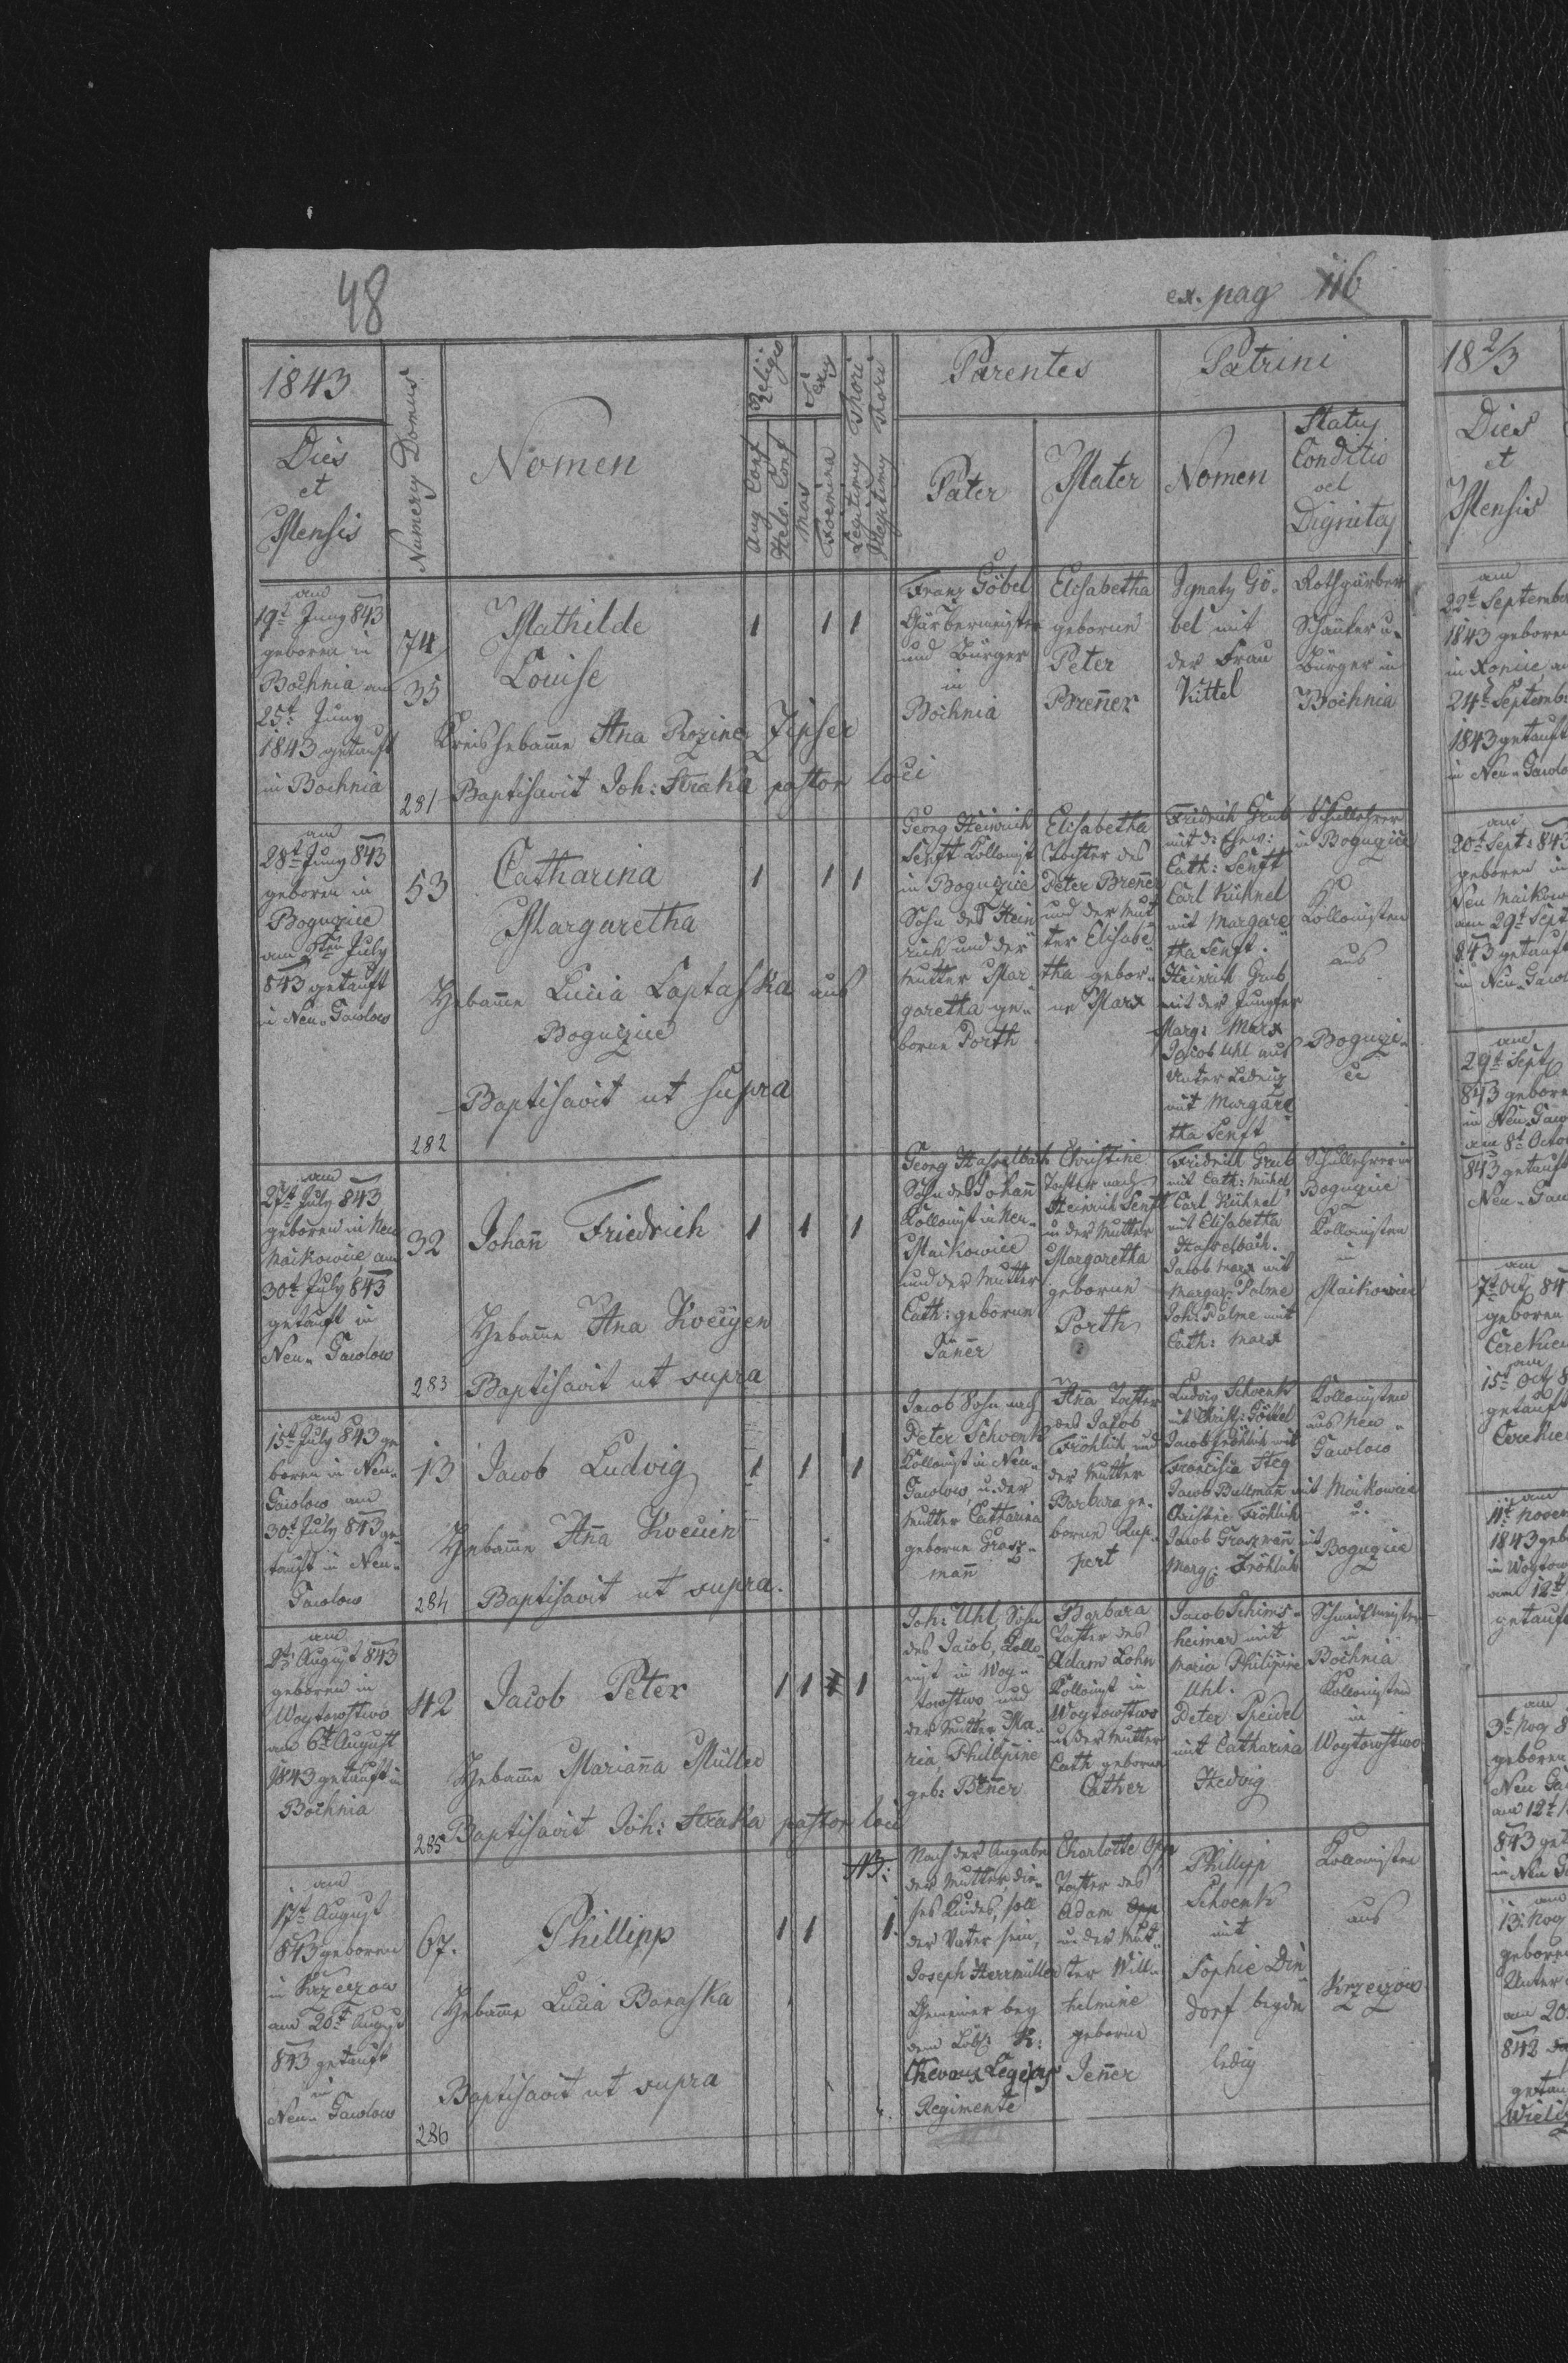 48
ex. pag 116
1843
Dies
et
Mensis
Numerus Domus
Nomen
Religio
Aug. Conf
Helv. Conf
Sexus
Mas
Foemina
Legitimy Thori
Illegitimy Thori
Parentes
Pater
Mater
Patrini
Nomen
Status
Conditio
vel
Dignitas
am
19t Juny 843
geboren in
Bochnia am
25t Juny
1843 getauft
in Bochnia
74
35
281
Mathilde
Louise
Kreishebamme Ana Rozine Zipser
Baptisavit Joh: Straka pastor loci
1 1 1
Franz Göbel
Gärbermeister
und Bürger
in
Bochnia
Elisabetha
geborne
Peter
Breñer
Ignaty Gö-
bel mit
der Frau
Kittel
Rothgärber
Schänker u.
Bürger in
Bochnia
am
28t Juny 843
geboren in
Boguczice
am July
843 getauft
in Neu-Gawlow
53
282
Catharina
Margaretha
Hebame Lucia Laptaska aus
Boguczice
Baptisavit ut supra
1 1 1
Georg Heinrich
Senft Kollonist
in Boguczice
Sohn des Hein
rich und der
Mutter Mar
garetha ge-
borne Porth
Elisabetha
Tochter des
Peter Breñer
und der Mut
ter Elisabe
tha gebor-
ne Marx
Fridrich Grub
mit d:
Cath: Senft
Carl Kühnel
mit Margare
tha Senft.
Heinrich Grub
mit der Jungfer
Marg: Marx
Jacob Uhl aus
Unter
mit Margare
tha Senft
Schullehrer
in Boguczice
Kollonisten
aus
Boguczi-
ce
am
27t July 843
geboren in Neu
Maikowice am
30t July 843
getauft in
Neu- Gawlow
32
283
Johañ Friedrich
Hebame Ana Kweczen
Baptisavit ut supra
1 1 1
Georg Hasselbach
Sohn des Johañ
Kollonist in Neu-
Maikowice
und der Mutter
Cath: geborne
Janer
Christine
Tochter nach
Heinrich Senft
u der Mutter
Margaretha
geborne
Porth
Fridrich Grub
mit Cath: Mühel
Carl Kühnel
mit Elisabetha
Hasselbach.
Jacob Marx mit
Margar: Palme
Joh: Palme mit
Cath: Marx
Schullehrer in
Boguczice
Kollonisten
in
Maikowice
am
15t July 843 ge
boren in Neu-
Gawlow am
30t July 843 ge-
tauft in Neu-
Gawlow
13
284
Jacob Ludvig
Hebame Aña Kweczen
Baptisavit ut supra.
1 1 1
Jacob Sohn nach
Peter Schwenk
Kollonist in Neu-
Gawlow, u. der
Mutter Catharina
geborne Grasz-
mañ
Aña Tochter
des Jacob
Fröhlich und
der Mutter
Barbara ge-
borne Rup-
pert
Ludvig Schwenk
mit Christ: Göttel
Jacob Fröhlich mit
Francisca Steg
Jacob Bullmañ mit
Christine Fröhlich
Jacob Graszmañ mit
Marg: Fröhlich
Kollonisten
aus Neu-
Gawlow
Maikowice
u.
Boguczice
am
2t August 843
geboren in
Woytowstwo
am 6t August
1843 getauft in
Bochnia
42
285
Jacob Peter
Hebame Mariaña Müller
Baptisavit Joh: Straka pastor loci
1 1 1
Joh: Uhl, Sohn
des Jacob, Kollo
nist in Woy-
towstwo, und
der Mutter Ma-
ria, Phillipine
geb: Beñer
Barbara
Tochter des
Adam Lohn
Kollonist in
Woytowstwo
u der Mutter
Cath geborne
Cather
Jacob Schims-
heimer mit
Maria Philipine
Uhl.
Peter Speidel
mit Catharina
Hedvig
Schmidtmeister
in
Bochnia
Kollonisten
in
Woytowstwo
am
17t August
843 geboren
in Krzeczow
am 20t August
843 getauft
in
Neu- Gawlow
67.
286
Phillipp
Hebame Lucia Banaska
Baptisavit ut supra
1 1 1.
NB:
Nach der Angabe
der Mutter die-
ses Kindes, soll
der Vater sein,
Joseph Herrmüller
Gemeiner bey
dem Löbl: K:
Chevaux Legers
Regimente
Charlotte Opp
Tochter des
Adam Opp
u der Mut-
ter Will-
helmine
geborne
Jeñer
Phillipp
Schwenk
mit
Sophie Din-
dorf beyde
ledig
Kollonisten
aus
Krzeczow
18 2/3
Dies
et
Mensis
am
22t September
1843 geboren
24t September
1843 getauft
in Neu-Gawlo
am
20t Sept: 843
geboren in
Neu Maikow
am 29t Sept
843 getauft
in Neu-Gawl
am
29t Sept
843 geboren
in Neu-Gaw
am 8t Octo
843 getauft
Neu-Gaw
am
7t Oct 84
geboren
am
15t Oct 8
getauft
am
11t Novem
1843 geb
in Woytow
am 12t
getauft
am
3t Nov 8
geboren
Neu Ga
am 12t
843 get
in Neu G
am
13t Nov
geboren
Unter
am 20
842
getau
Wieli